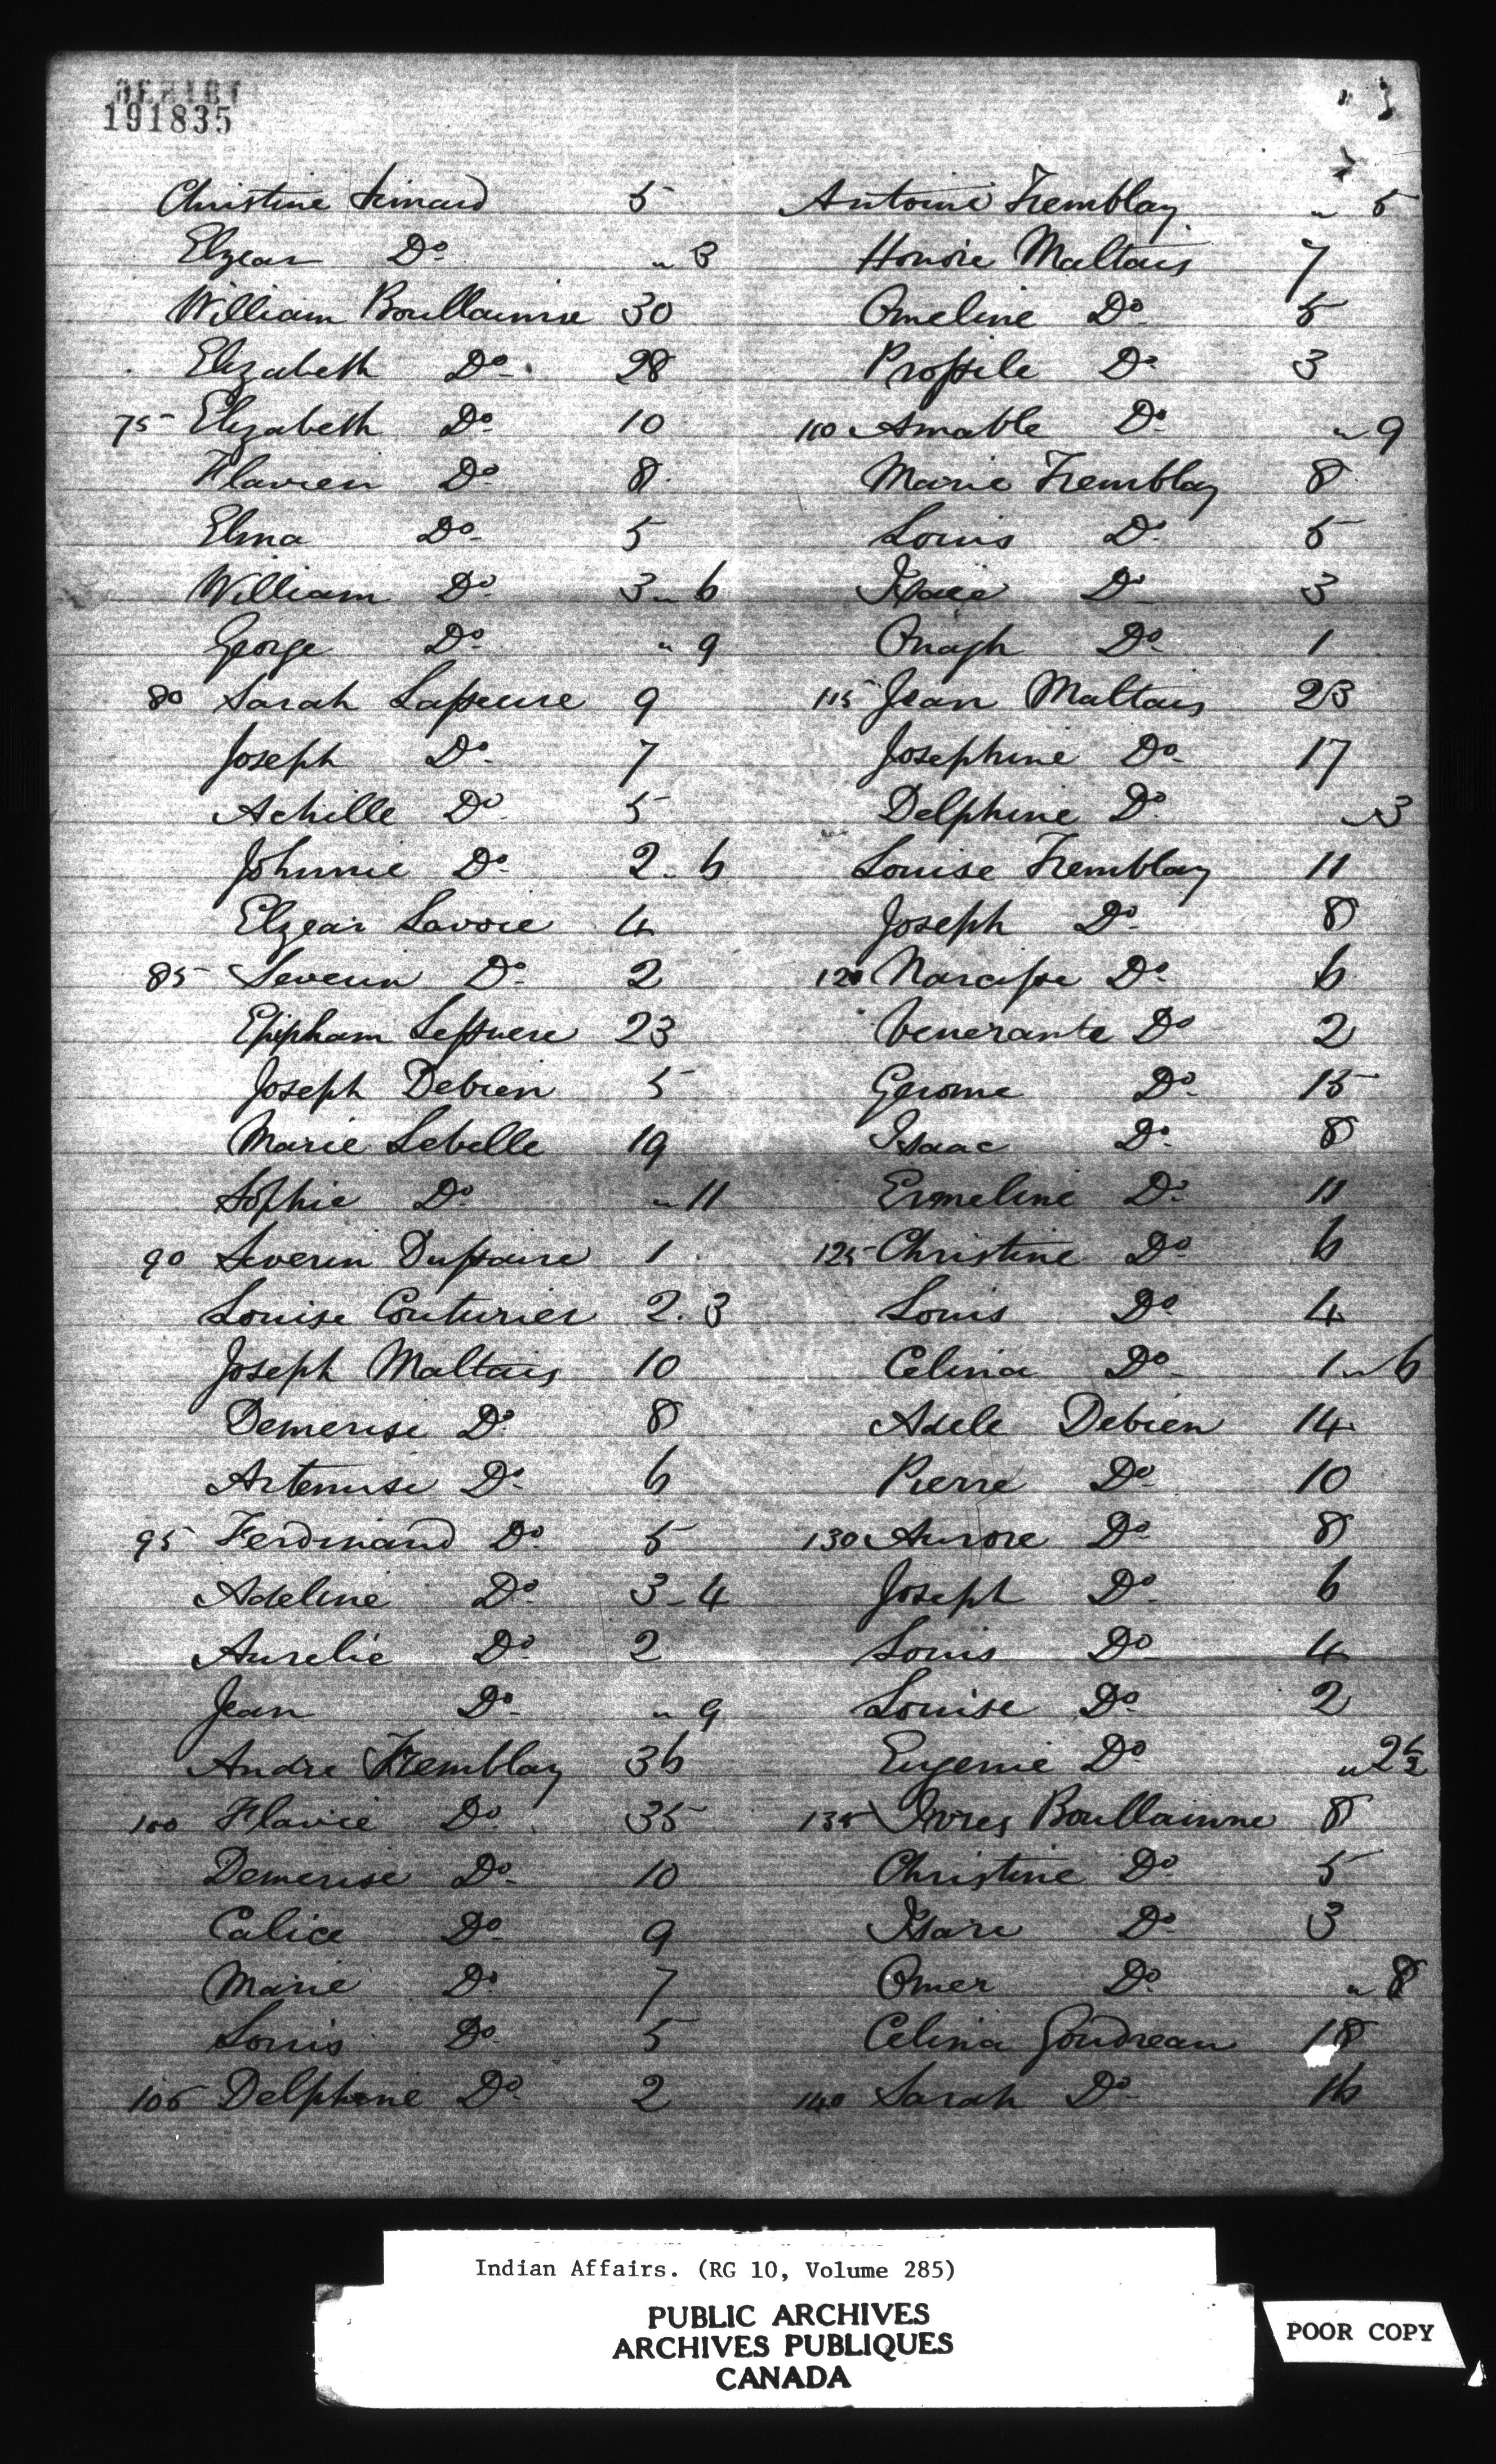 191835
Christine Simard 5
Elzear Do " 3
William Boullaimie 30
Elizabeth Do 28
75 Elizabeth Do 10
Flavien Do 8
Elina Do 5
William Do 3 " 6
George Do " 9
80 Sarah 9
Joseph Do 7
Achille Do 5
Johnnie Do 2 - 6
Elzear Savoie 4
85 Severin Do 2
Epipham 23
Joseph Debien 5
Marie Lebelle 19
Sophie Do " 11
90 Severin 1
Louise Couturier 2 . 3
Joseph Maltais 10
Demerise Do 8
Artemise Do 6
95 Ferdinand Do 5
Adeline Do 3 - 4
Aurelie Do 2
Jean Do " 9
Andre Tremblay 36
100 Flavie Do 35
Demerise Do 10
Calice Do 9
Marie Do 7
Louis Do 5
105 Delphine Do 2
Antoine Tremblay " 5
Honore Maltais 7
Omeline Do 5
Do 3
110 Amable Do " 9
Marie Tremblay 8
Louis Do 5
Do 3
Do 1
115 Jean Maltais 23
Josephine Do 17
Delphine Do " 3
Louise Tremblay 11
Joseph Do 8
120 Narcisse Do 6
Venerante Do 2
Gerome Do 15
Isaac Do 8
Ermeline Do 11
125 Christine Do 6
Louis Do 4
Celina Do 1 " 6
Adele Debien 14
Pierre Do 10
130 Aurore Do 8
Joseph Do 6
Louis Do 4
Louise Do 2
Eugenie Do
135 Boullaimne 8
Christine Do 5
Do 3
Omer Do " 8
Celina Goudreau 18
140 Sarah Do 16
Indian Affairs. (RG 10, Volume 285)
PUBLIC ARCHIVES
ARCHIVES PUBLIQUES
CANADA
POOR COPY